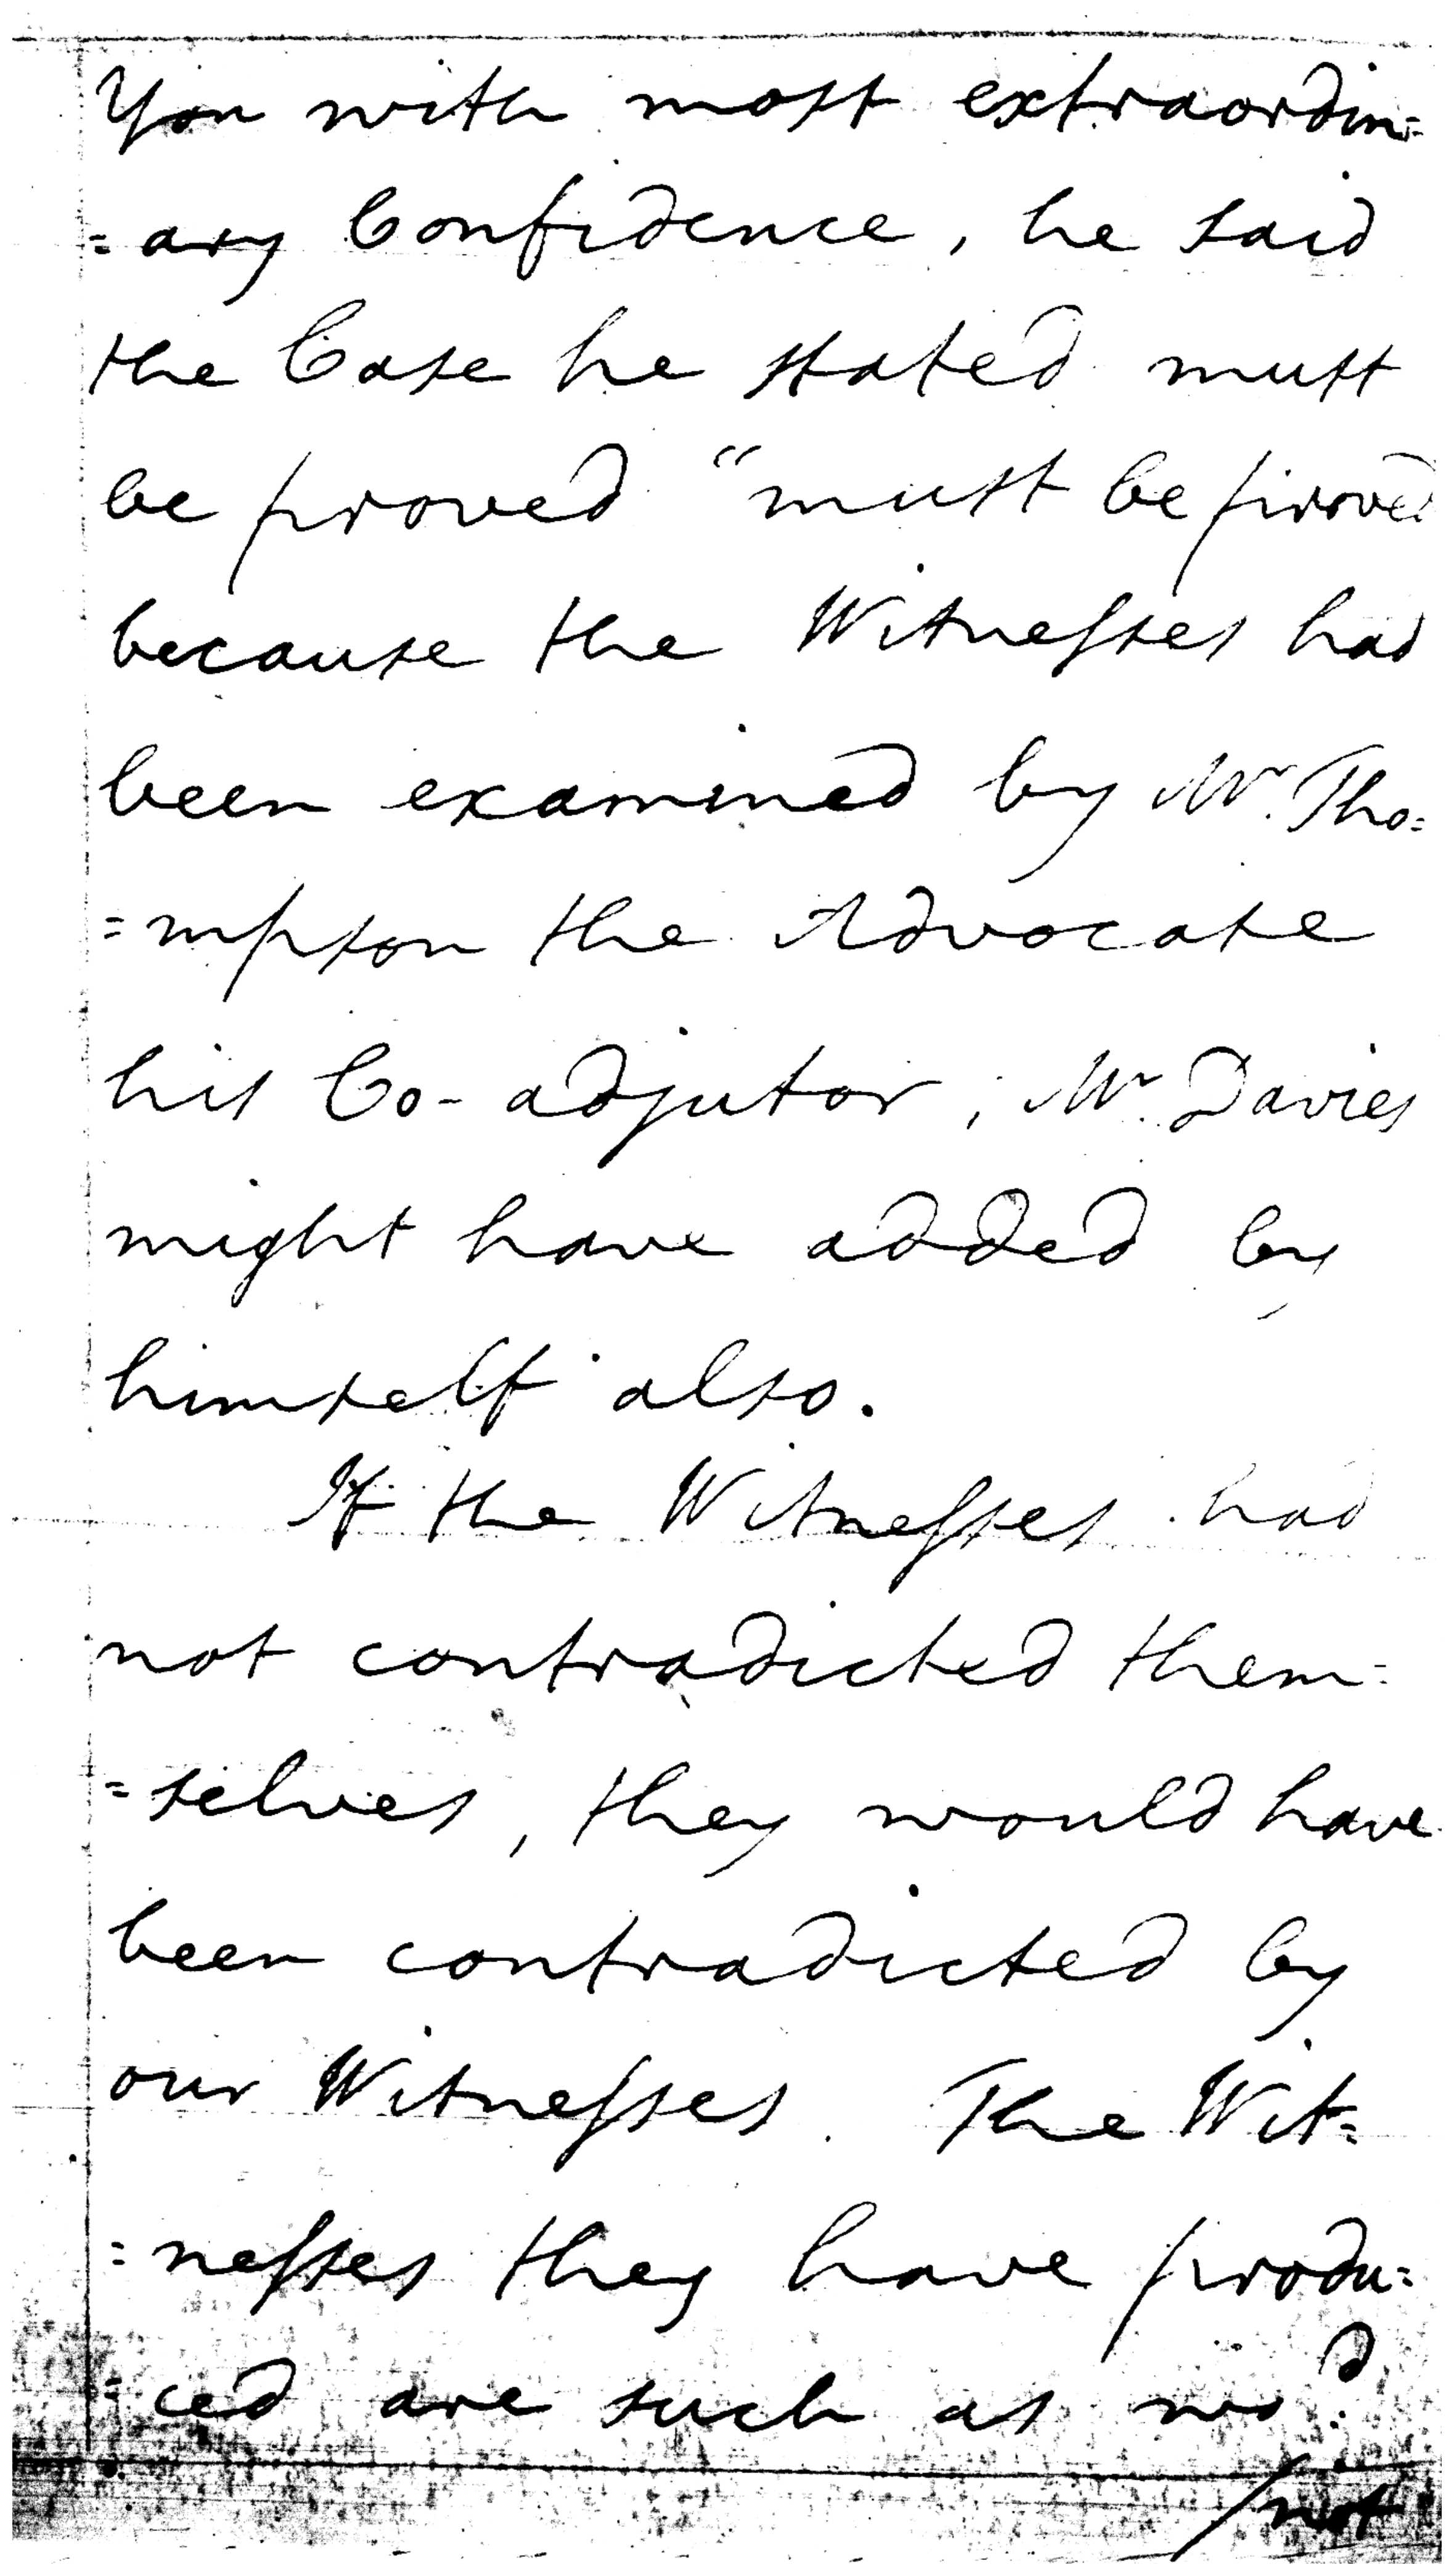 You with most extraordin=
=ary Confidence, he said
the Case he stated must
be proved "must be proved
because the Witnesses had
been examined by Mr. Tho=
=mpson the Advocate
his Co-adjutor, Mr. Davies
might have added by
himself also.
If the Witnesses had
not contradicted them=
=selves, they would have
been contradicted by
our Witnesses. The Wit=
=nesses they have produ=
=ced are such as wod.
/not